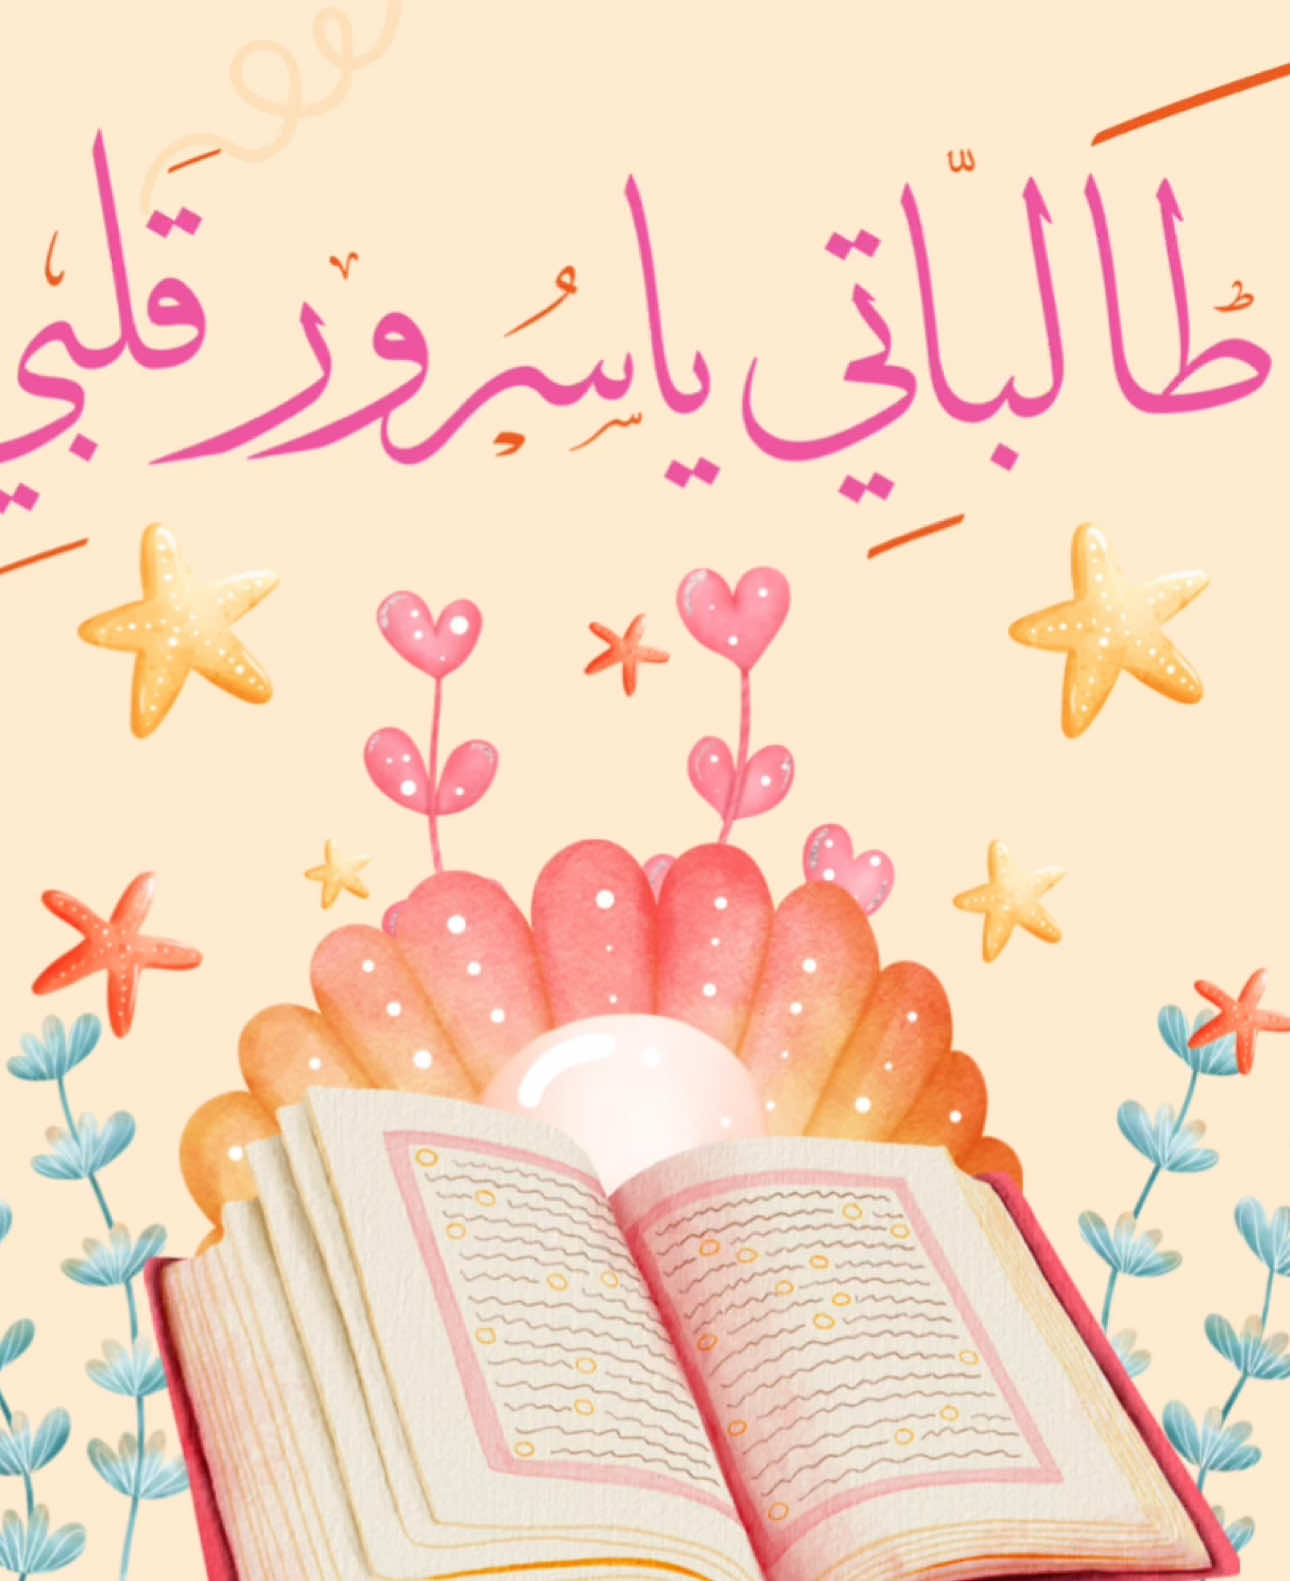 طَالبّاتي يا سُرور قَلبي